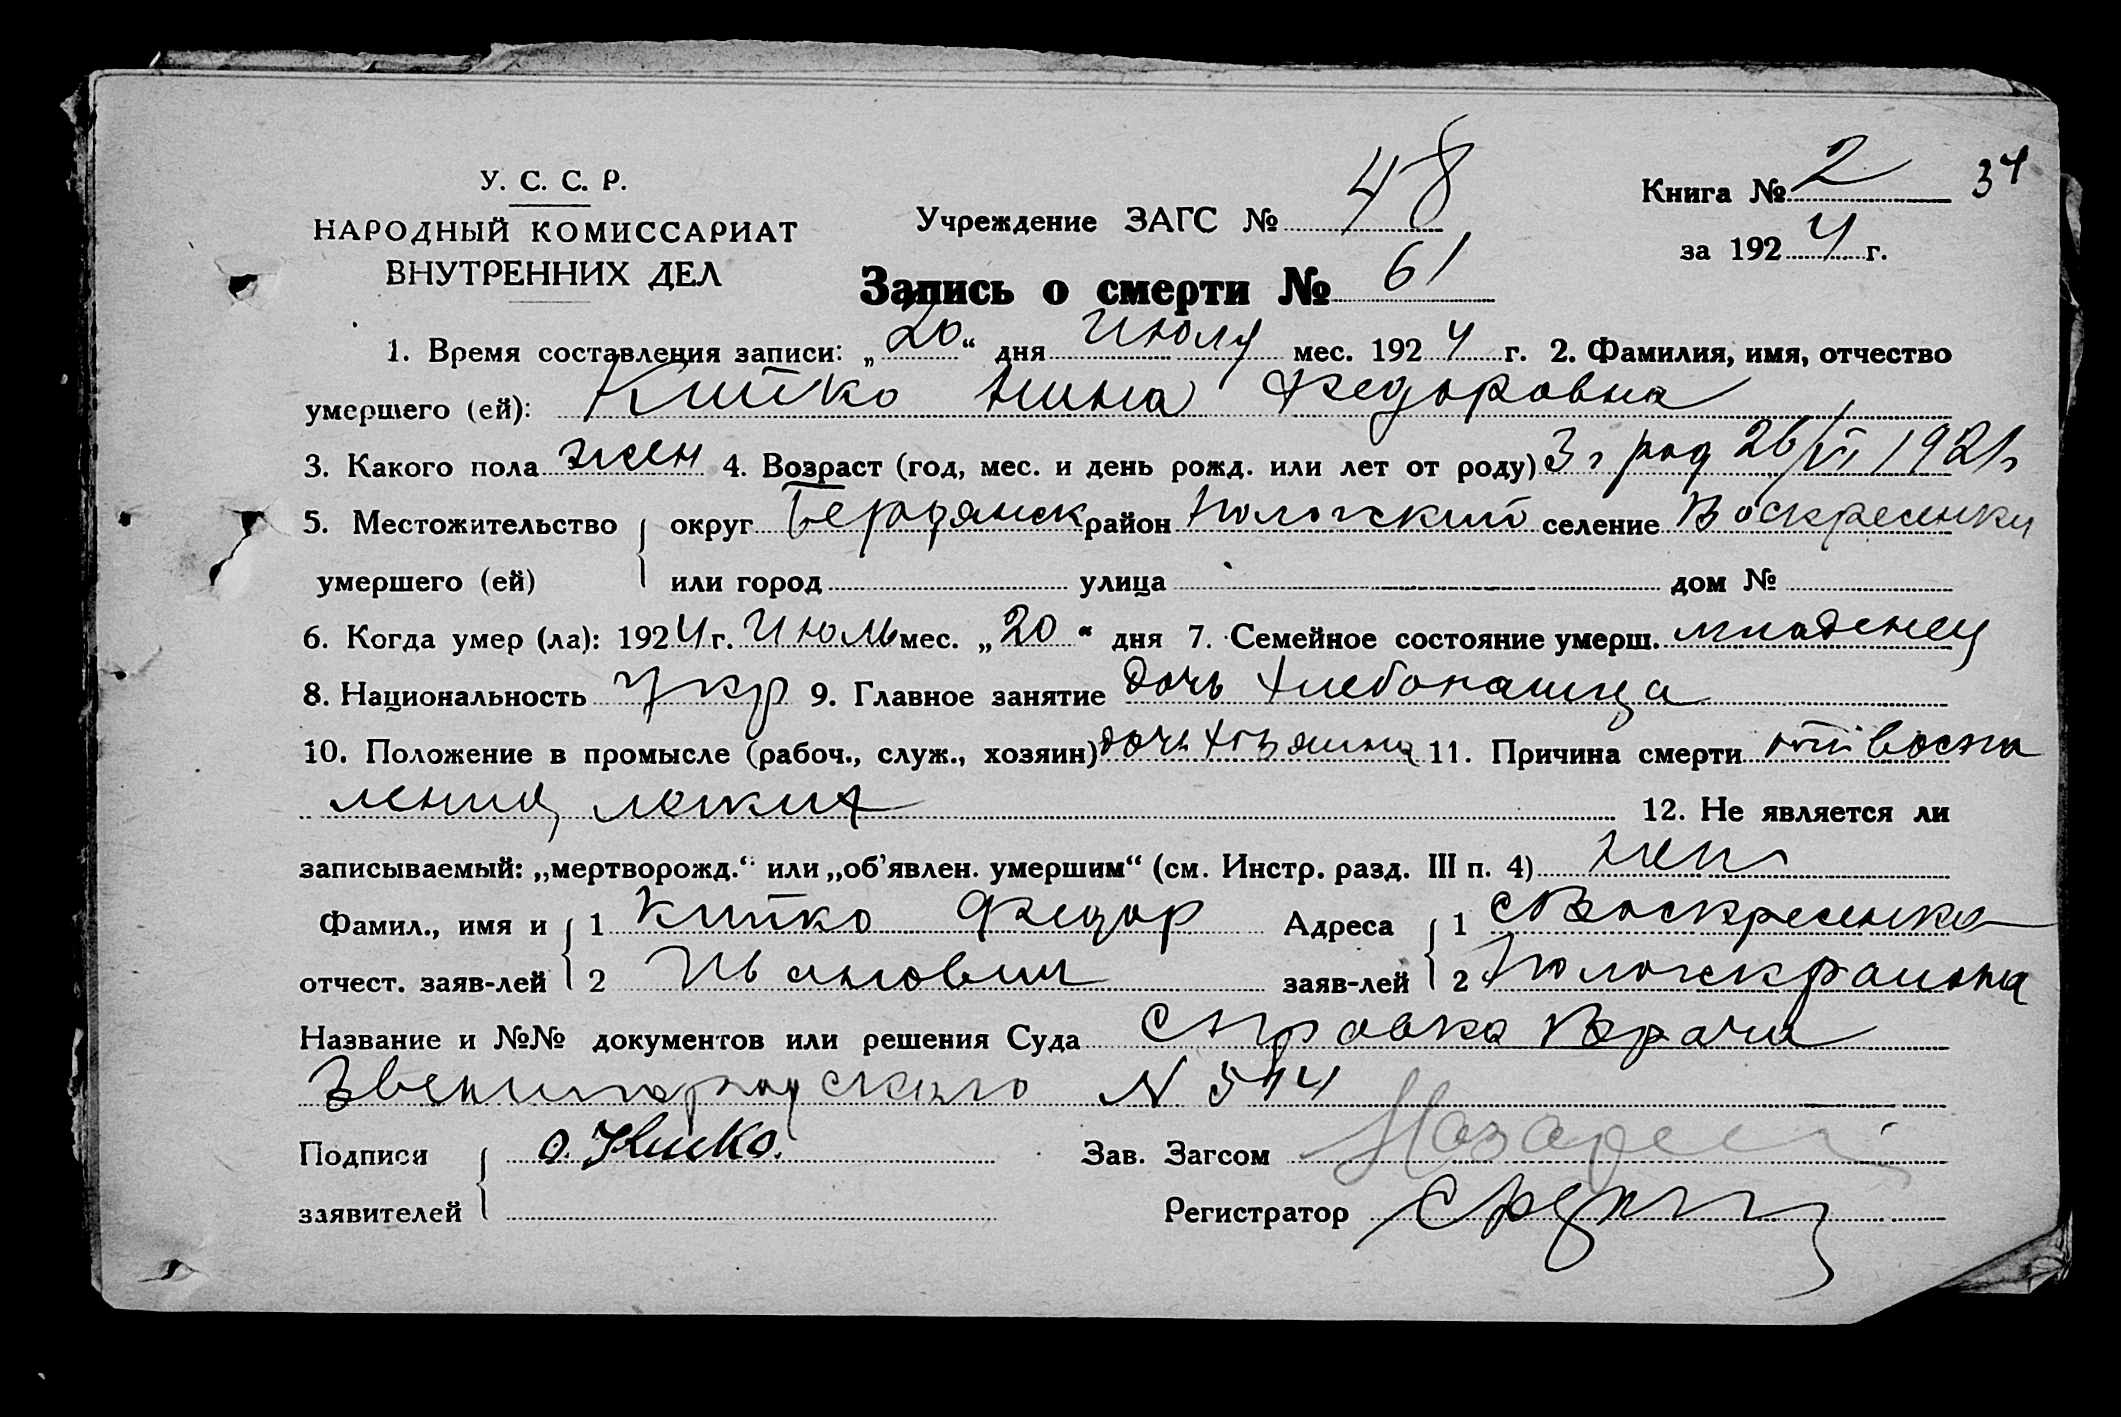 У. С. С. Р.
НАРОДНЫЙ КОМИССАРИАТ
ВНУТРЕННИХ ДЕЛ
Учреждение ЗАГС № 48
Книга № 2 34
за 1924 г.
Запись о смерти № 61
1. Время составления записи: „20“ дня Июля мес. 1924 г. 2. Фамилия, имя, отчество
умершего (ей): Китко Нина Федоровна
3. Какого пола жен 4. Возраст (год, мес. и день рожд. или лет от роду) 3 г род 26/VII 1921 г
5. Местожительство умершего (ей) { округ Бердянск район Пологский селение Воскресенки
или город улица дом №
6. Когда умер (ла): 1924 г. Июль мес. „20“ дня 7. Семейное состояние умерш. младенец
8. Национальность укр 9. Главное занятие дочь хлебопашца
10. Положение в промысле (рабоч., служ., хозяин) дочь хозяина 11. Причина смерти от воспа
ления легких 12. Не является ли
записываемый: „мертворожд.“ или „об'явлен. умершим“ (см. Инстр. разд. III п. 4) нет
Фамил., имя и отчест. заяв-лей { 1 Китко Федор Адреса заяв-лей { 1 с Воскресенка
2 Иванович 2 Пологск района
Название и №№ документов или решения Суда Справка Врача
Звенигородского N 544
Подписи заявителей { Ф. Китко. Зав. Загсом
Регистратор